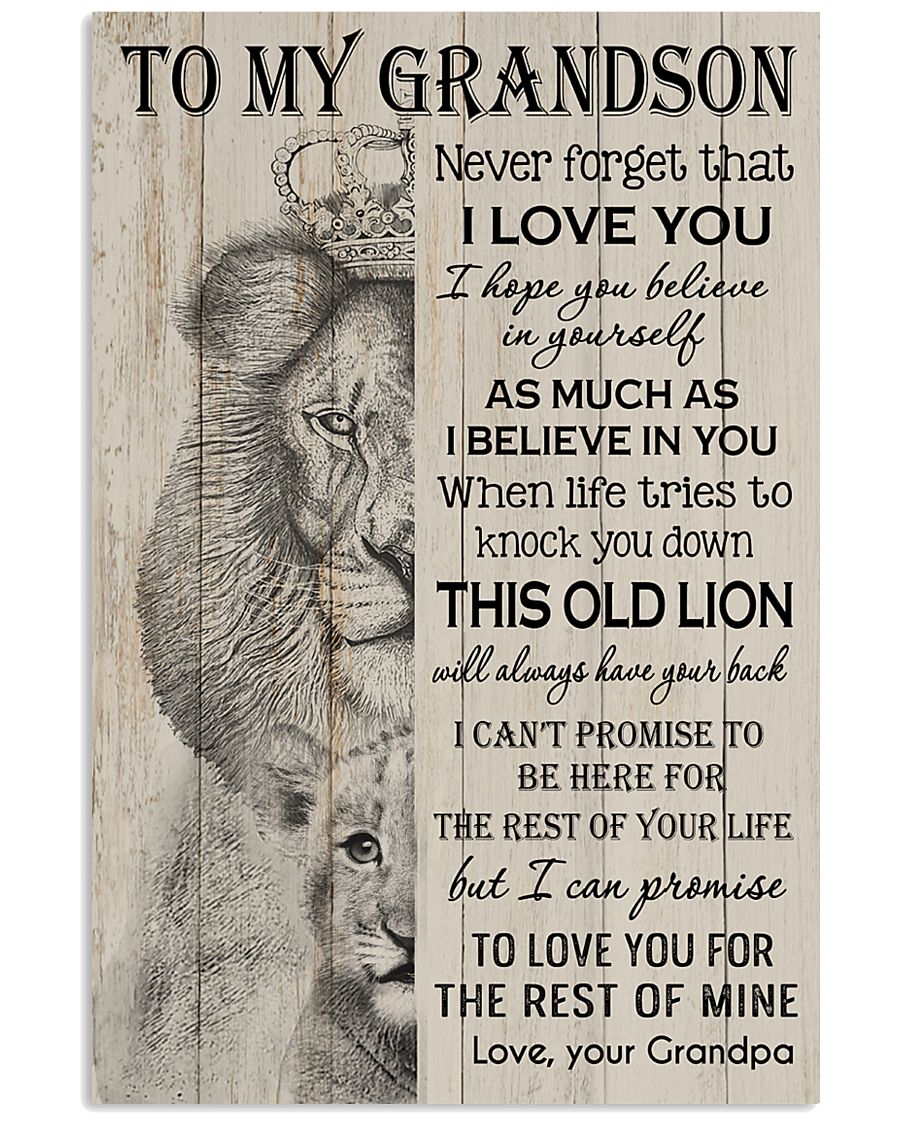 TO MY GRANDSON
Never forget that
I LOVE YOU
I hope you believe
in yourself
AS MUCH AS
I BELIEVE IN YOU
When life tries to
knock you down
THIS OLD LION
will always have your back
I CAN'T PROMISE TO
BE HERE FOR
THE REST OF YOUR LIFE
but I can promise
TO LOVE YOU FOR
THE REST OF MINE
Love, your Grandpa